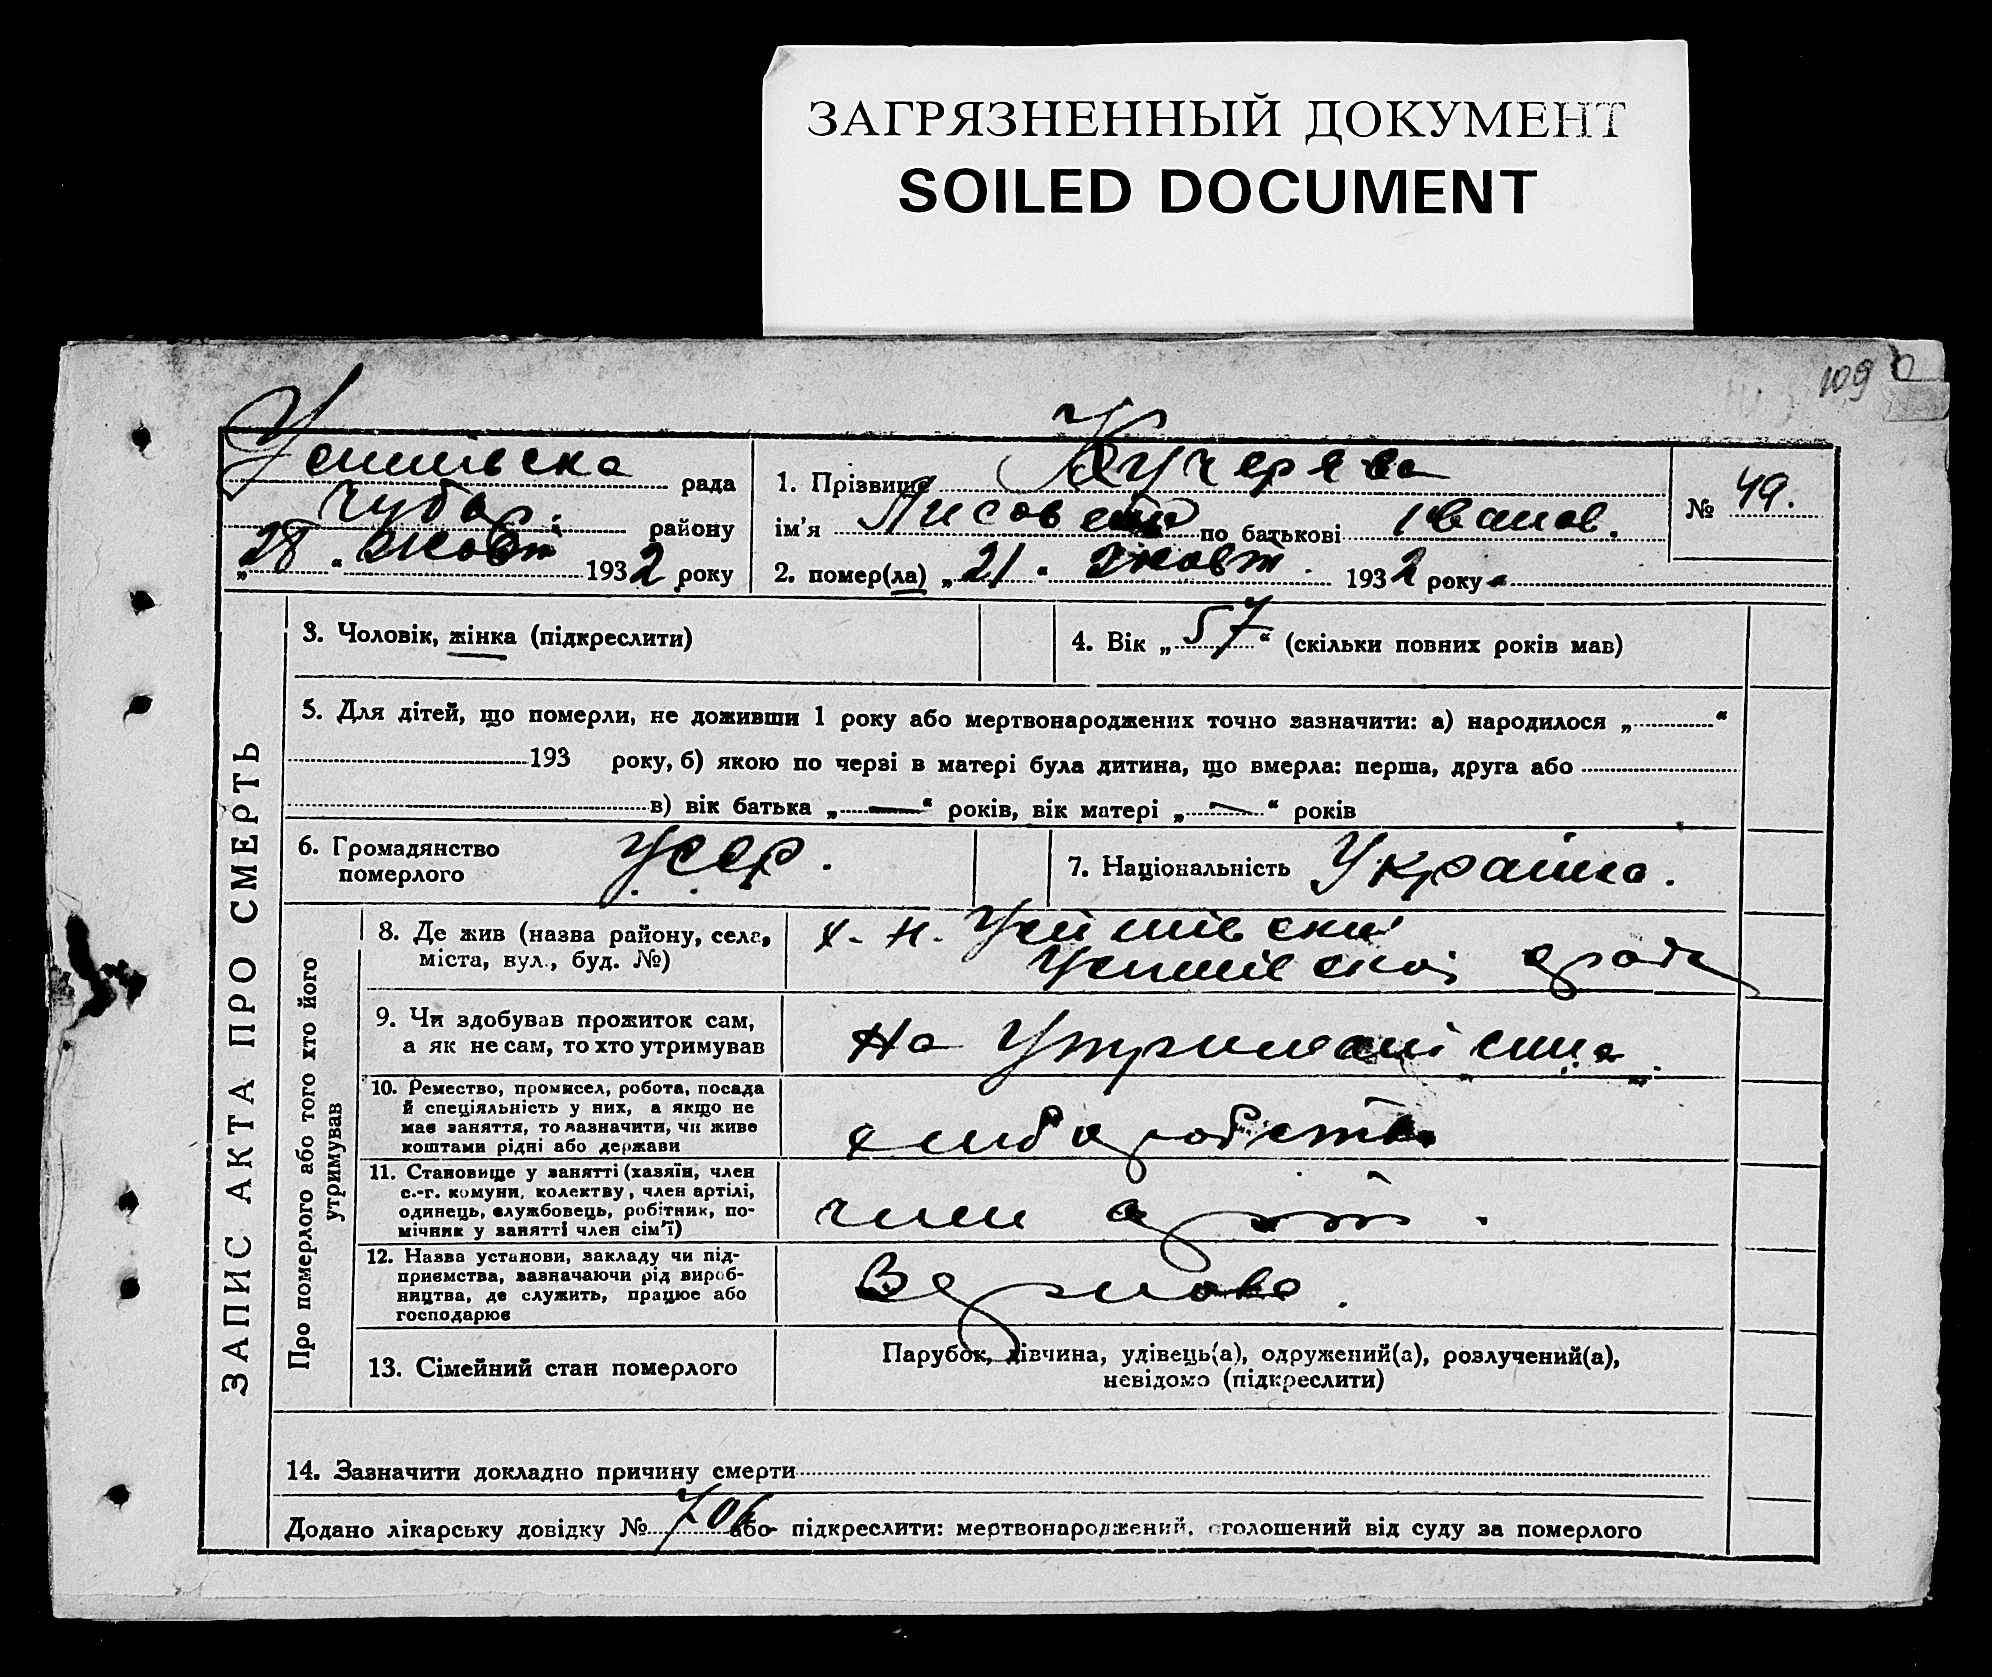 ЗАГРЯЗНЕННЫЙ ДОКУМЕНТ
SOILED DOCUMENT
109
рада
Чубар. району
„28“ Жовт 1932 року
1. Прізвище Кучерява
ім'я по батькові Іванов.
2. помер(ла) „21“ Жовт. 1932 року
№ 49.
ЗАПИС АКТА ПРО СМЕРТЬ
3. Чоловік, жінка (підкреслити)
4. Вік „57“ (скільки повних років мав)
5. Для дітей, що померли, не доживши 1 року або мертвонароджених точно зазначити: а) народилося „ “
193 року, б) якою по черзі в матері була дитина, що вмерла: перша, друга або
в) вік батька „—“ років, вік матері „—“ років
6. Громадянство
померлого
УССР.
7. Національність Україн.
Про померлого або того хто його
утримував
8. Де жив (назва району, села,
міста, вул., буд. №)
9. Чи здобував прожиток сам,
а як не сам, то хто утримував
На Утриманні сина
10. Ремество, промисел, робота, посада
й спеціяльність у них, а якщо не
має заняття, то зазначити, чи живе
коштами рідні або держави
хлибаробство
11. Становище у занятті (хазяїн, член
с.-г. комуни, колектву, член артілі,
одинець, службовець, робітник, по-
мічник у занятті член сім'ї)
член
12. Назва установи, закладу чи під-
приємства, зазначаючи рід вироб-
ництва, де служить, працює або
господарює
13. Сімейний стан померлого
Парубок, дівчина, удівець(а), одружений(а), розлучений(а),
невідомо (підкреслити)
14. Зазначити докладно причину смерти
Додано лікарську довідку № 706 або підкреслити: мертвонароджений, оголошений від суду за померлого